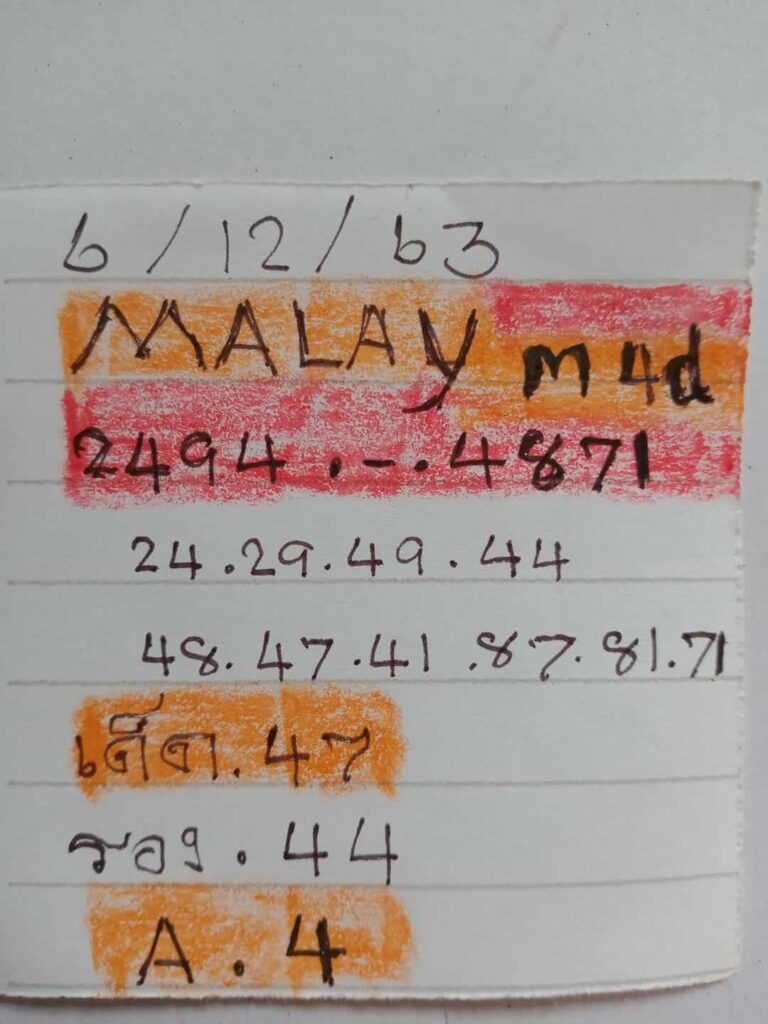 6/12/63
MALAY m4d
2494.-.4871
24.29.49.44
48.47.41.87.81.71
เด็ด.47
รอง.44
A.4